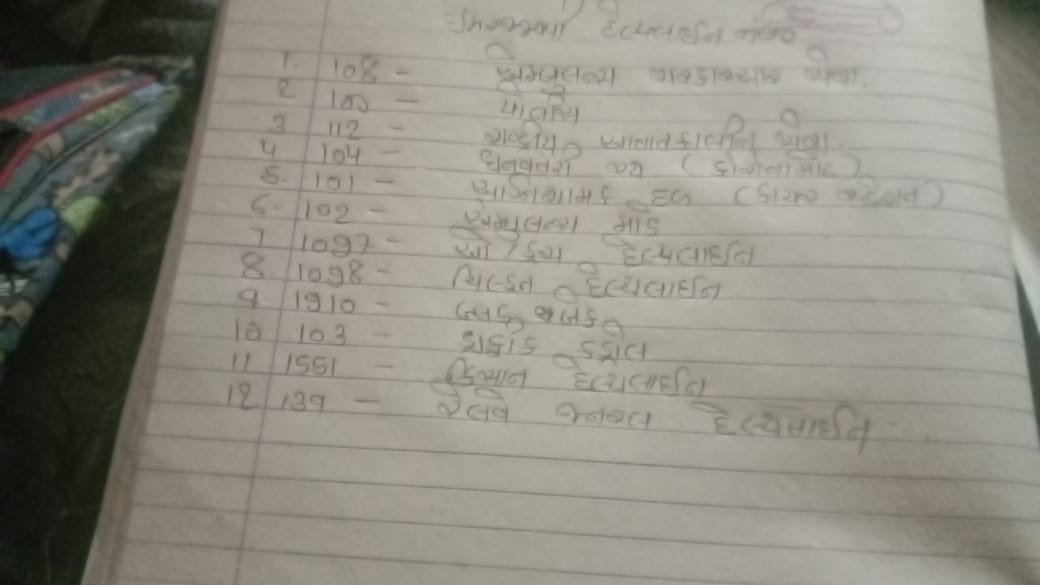 હેલ્પલાઈન નંબર
1. 108 - એમ્બ્યુલન્સ સેવા.
2 100 - પોલીસ
3 112 - રાષ્ટ્રીય આપાતકાલીન સેવા.
4 104 -
5. 101 - અગ્નિશામક દળ (ફાયર સ્ટેશન)
6. 102 - એમ્બ્યુલન્સ માટે
7 1097 - હેલ્પલાઈન
8. 1098 - ચિલ્ડ્રન હેલ્પલાઈન
9. 1910 - બ્લડ બેંક
10 103 - ટ્રાફિક કંટ્રોલ
11 1551 - કિસાન હેલ્પલાઈન
12 139 - રેલવે જનરલ હેલ્પલાઈન